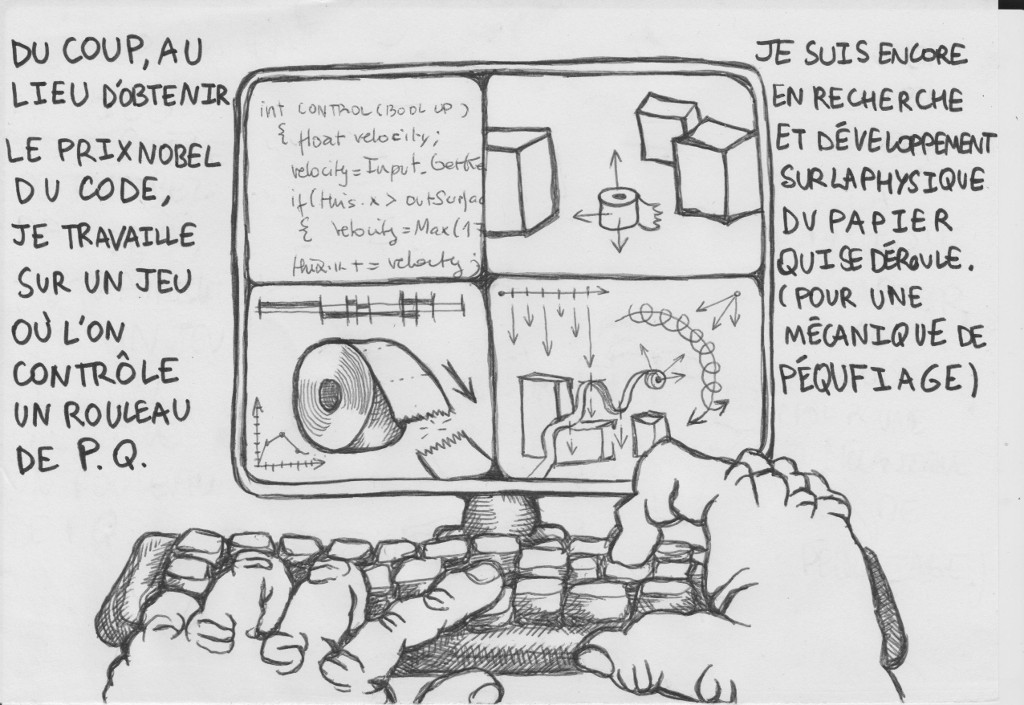 DU COUP, AU
LIEU D'OBTENIR
LE PRIX NOBEL
DU CODE,
JE TRAVAILLE
SUR UN JEU
OÙ L'ON
CONTRÔLE
UN ROULEAU
DE P.Q.
int CONTROL(BOOL UP)
{ float velocity;
velocity=Input_Get
if(this.x > outSurfac
{ velocity=Max(1
+= velocity;
JE SUIS ENCORE
EN RECHERCHE
ET DÉVELOPPEMENT
SUR LA PHYSIQUE
DU PAPIER
QUI SE DÉROULE.
(POUR UNE
MÉCANIQUE DE
PÉQUFIAGE)